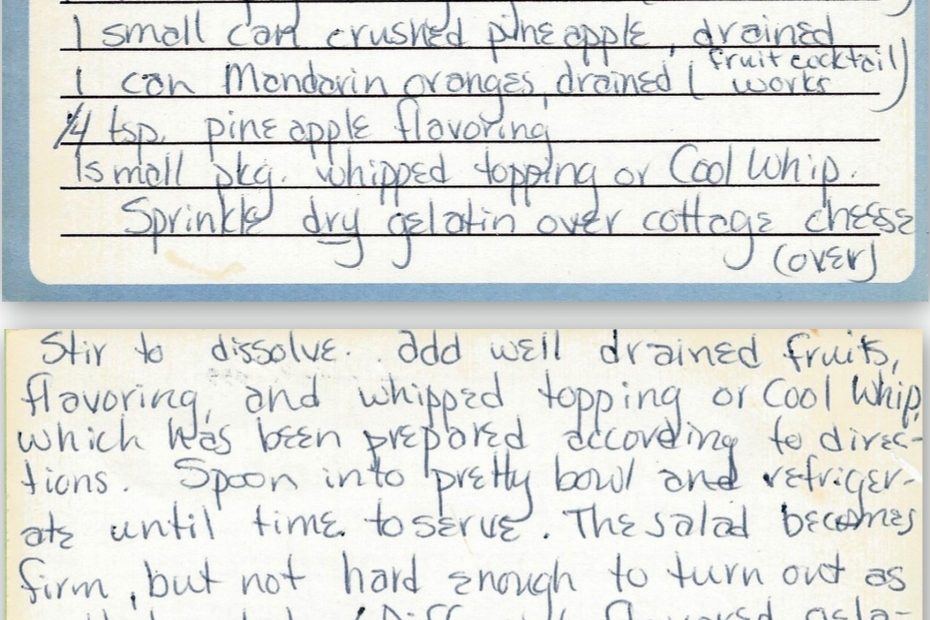 1 small can crushed pineapple, drained
1 can Mandarin oranges, drained (fruit cocktail works)
1/4 tsp. pineapple flavoring
1 small pkg. whipped topping or Cool Whip.
Sprinkle dry gelatin over cottage cheese
(over)
Stir to dissolve. Add well drained fruits,
flavoring, and whipped topping or Cool Whip,
which has been prepared according to direc-
tions. Spoon into pretty bowl and refriger-
ate until time to serve. The salad becomes
firm, but not hard enough to turn out as
flavored gela-